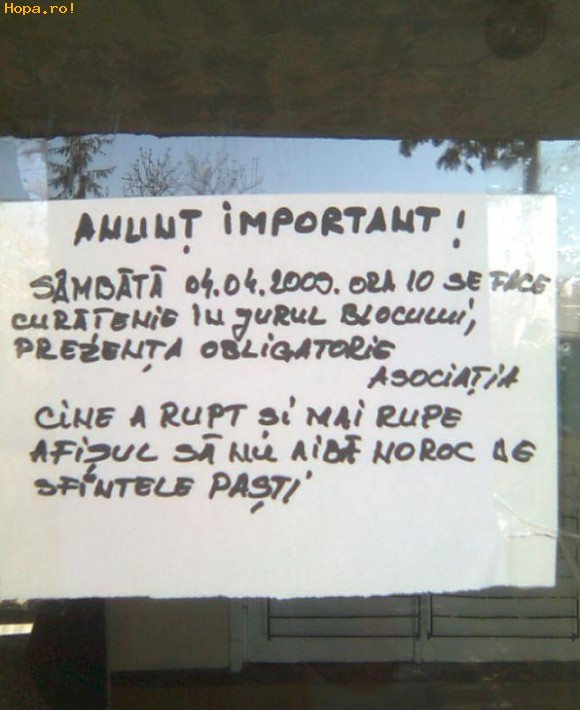 Hopa.ro!
ANUNȚ IMPORTANT!
SÂMBĂTĂ 04.04.2009. ORA 10 SE FACE
CURĂȚENIE IN JURUL BLOCULUI,
PREZENȚA OBLIGATORIE
ASOCIAȚIA
CINE A RUPT SI MAI RUPE
AFIȘUL SĂ NU AIBĂ NOROC DE
SFINTELE PAȘTI